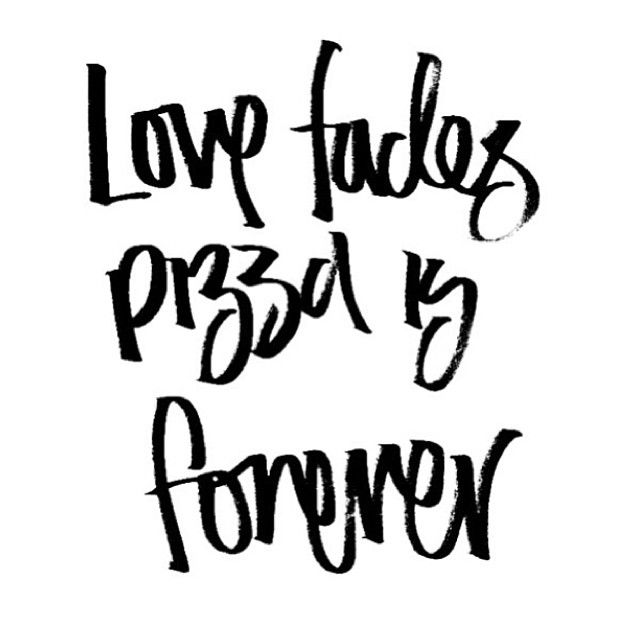 Love fades
pizza is
forever